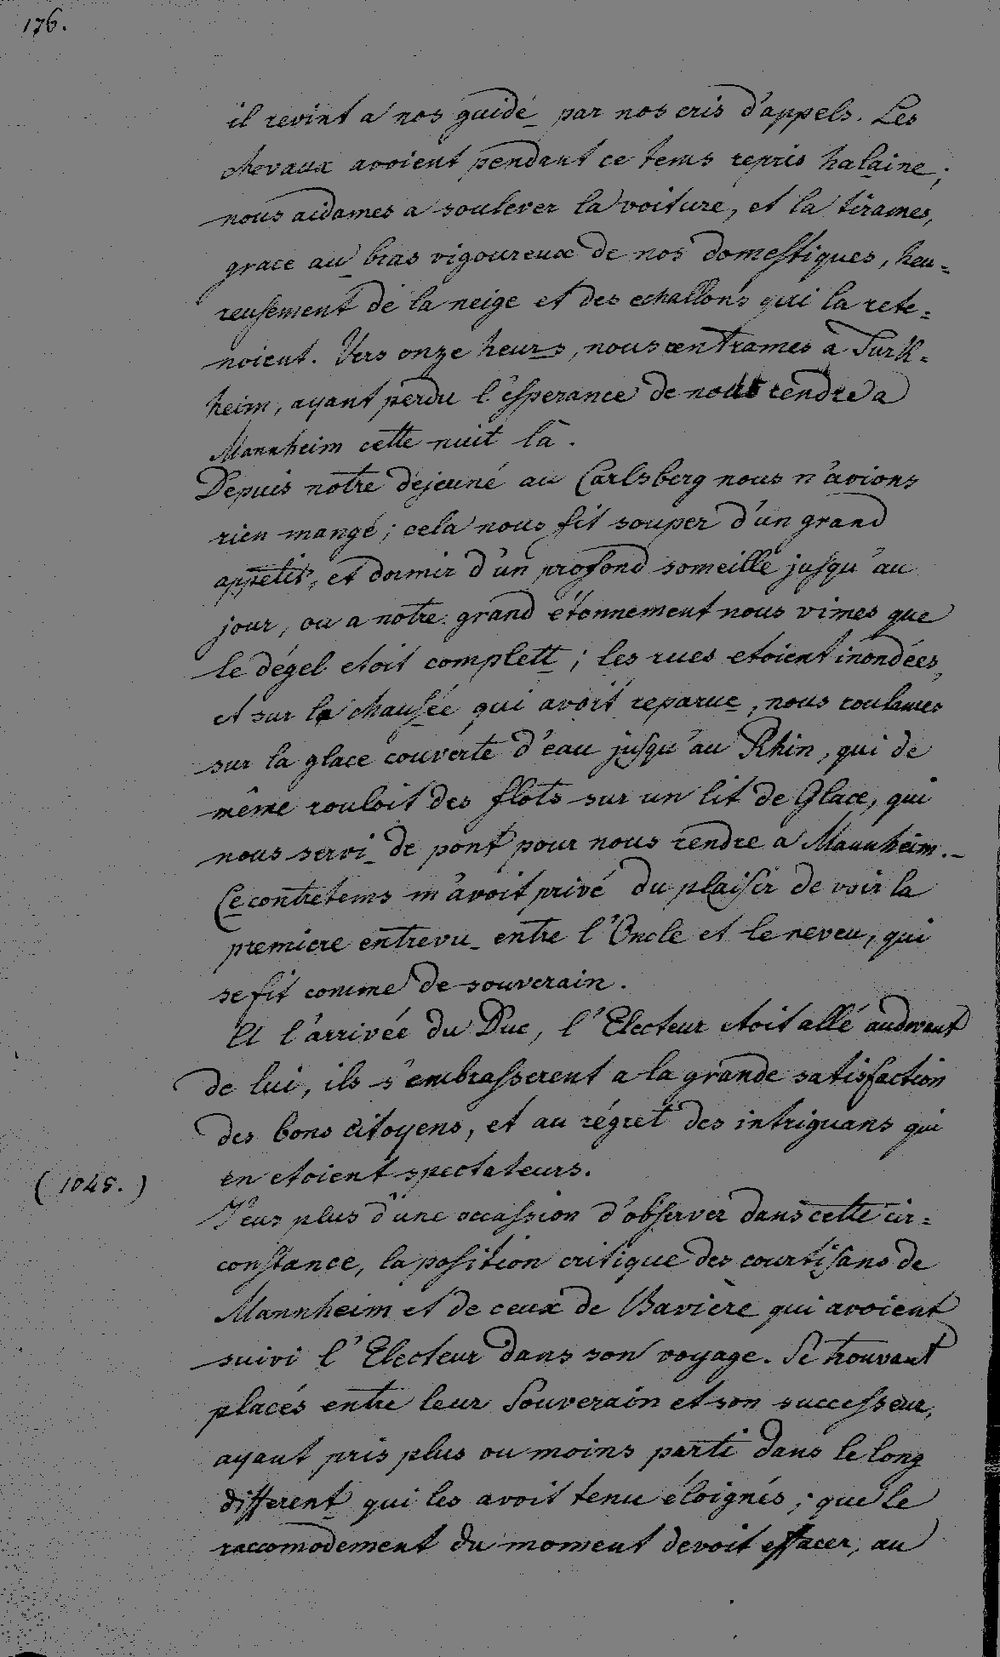 176.
il revint a nos guidé par nos cris d'appels. Les
chevaux avoient pendant ce tems repris halaine;
nous aidames a soulever la voiture, et la tirames,
grace au bras vigoureux de nos domestiques, heu=
reusement de la neige et des echallons qui la rete=
noient. Vers onze heurs, nous rentrames a Turk=
heim, ayant perdu l'esperance de nous rendre a
Mannheim cette nuit là.
Depuis notre dejeuné au Carlsberg nous n'avions
rien mangé; cela nous fit souper d'un grand
appetit, et dormir d'un profond someille jusqu'au
jour, ou a notre grand étonnement nous vimes que
le dégel etoit complett; les rues etoient inondées,
et sur la chausée qui avoit reparue, nous roulames
sur la glace couverte d'eau jusqu'au Rhin, qui de
même rouloit des flots sur un lit de Glace, qui
nous servi de pont pour nous rendre a Mannheim.
Ce contretems m'avoit privé du plaisir de voir la
premiere entrevu entre l'Oncle et le neveu, qui
se fit comme de souverain.
A l'arrivée du Duc, l'Electeur etoit allé audevant
de lui, ils s'embrasserent a la grande satisfaction
des bons citoyens, et au régret des intriguans qui
en etoient spectateurs.
(1045.)
J'eus plus d'une occassion d'observer dans cette cir=
constance, la position critique des courtisans de
Mannheim et de ceux de Bavière qui avoient
suivi l'Electeur dans son voyage. Se trouvant
placés entre leur Souverain et son successeur,
ayant pris plus ou moins parti dans le long
different qui les avoit tenu éloignés; que le
raccomodement du moment devoit effacer, au